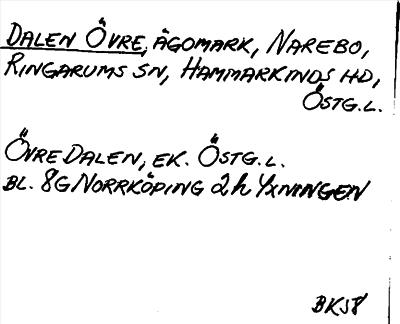 DALEN ÖVRE, ÄGOMARK, NAREBO,
RINGARUMS SN, HAMMARKINDS HD,
ÖSTG.L.
ÖVRE DALEN, EK. ÖSTG.L.
BL. 8G NORRKÖPING 2h YXNINGEN
BKSV